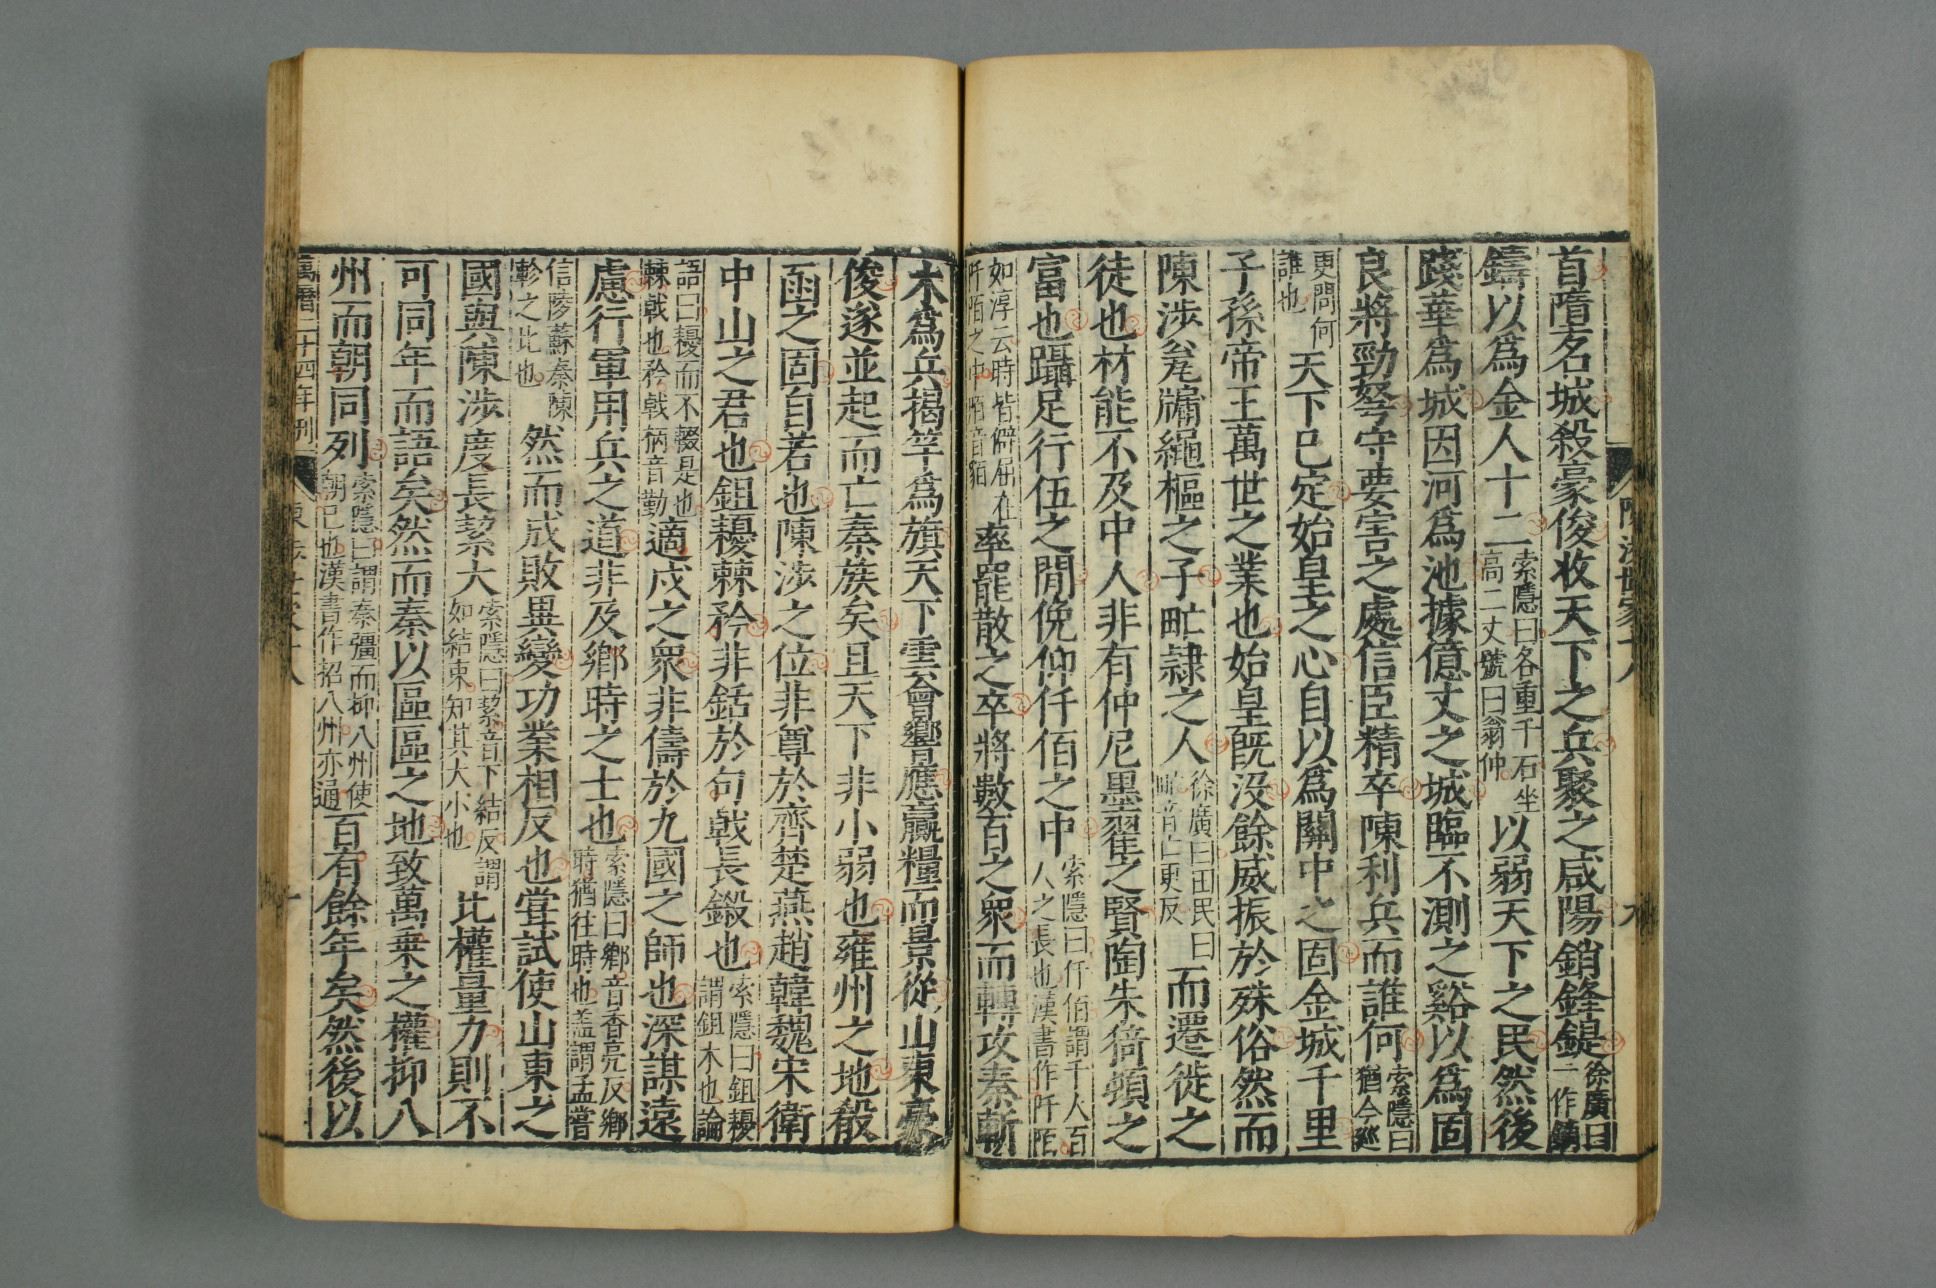 陳涉世家十八
九
首隳名城殺豪俊收天下之兵聚之咸陽銷鋒鍉徐廣曰一作鏑
鑄以爲金人十二索隱曰各重千石坐高二丈號曰翁仲以弱天下之民然後
踐華爲城因河爲池據億丈之城臨不測之谿以爲固
良將勁弩守要害之處信臣精卒陳利兵而誰何索隱曰猶今巡
更問何誰也天下已定始皇之心自以爲關中之固金城千里
子孫帝王萬世之業也始皇旣沒餘威振於殊俗然而
陳涉甕牖繩樞之子甿隷之人徐廣曰田民曰甿音亡更反而遷徙之
徒也材能不及中人非有仲尼墨翟之賢陶朱猗頓之
富也躡足行伍之閒俛仰仟佰之中索隱曰仟佰謂千人百人之長也漢書作阡陌
如淳云時皆僻屈在阡陌之中陌音貊率罷散之卒將數百之衆而轉攻秦斬
木爲兵揭竿爲旗天下雲會響應贏糧而景從山東豪
俊遂並起而亡秦族矣且天下非小弱也雍州之地殽
函之固自若也陳涉之位非尊於齊楚燕趙韓魏宋衛
中山之君也鉏耰棘矜非銛於句戟長鎩也索隱曰鉏耰謂鉏木也論
語曰耰而不輟是也棘戟也矜戟柄音勤適戍之衆非儔於九國之師也深謀遠
慮行軍用兵之道非及鄕時之士也索隱曰鄕音香亮反鄕時猶往時也蓋謂孟嘗
信陵蘇秦陳軫之比也然而成敗異變功業相反也嘗試使山東之
國與陳涉度長絜大索隱曰絜音下結反謂如結束知其大小也比權量力則不
可同年而語矣然而秦以區區之地致萬乘之權抑八
州而朝同列索隱曰謂秦彊而抑八州使朝己也漢書作招八州亦通百有餘年矣然後以
萬曆二十四年刊
陳涉世家十八
十